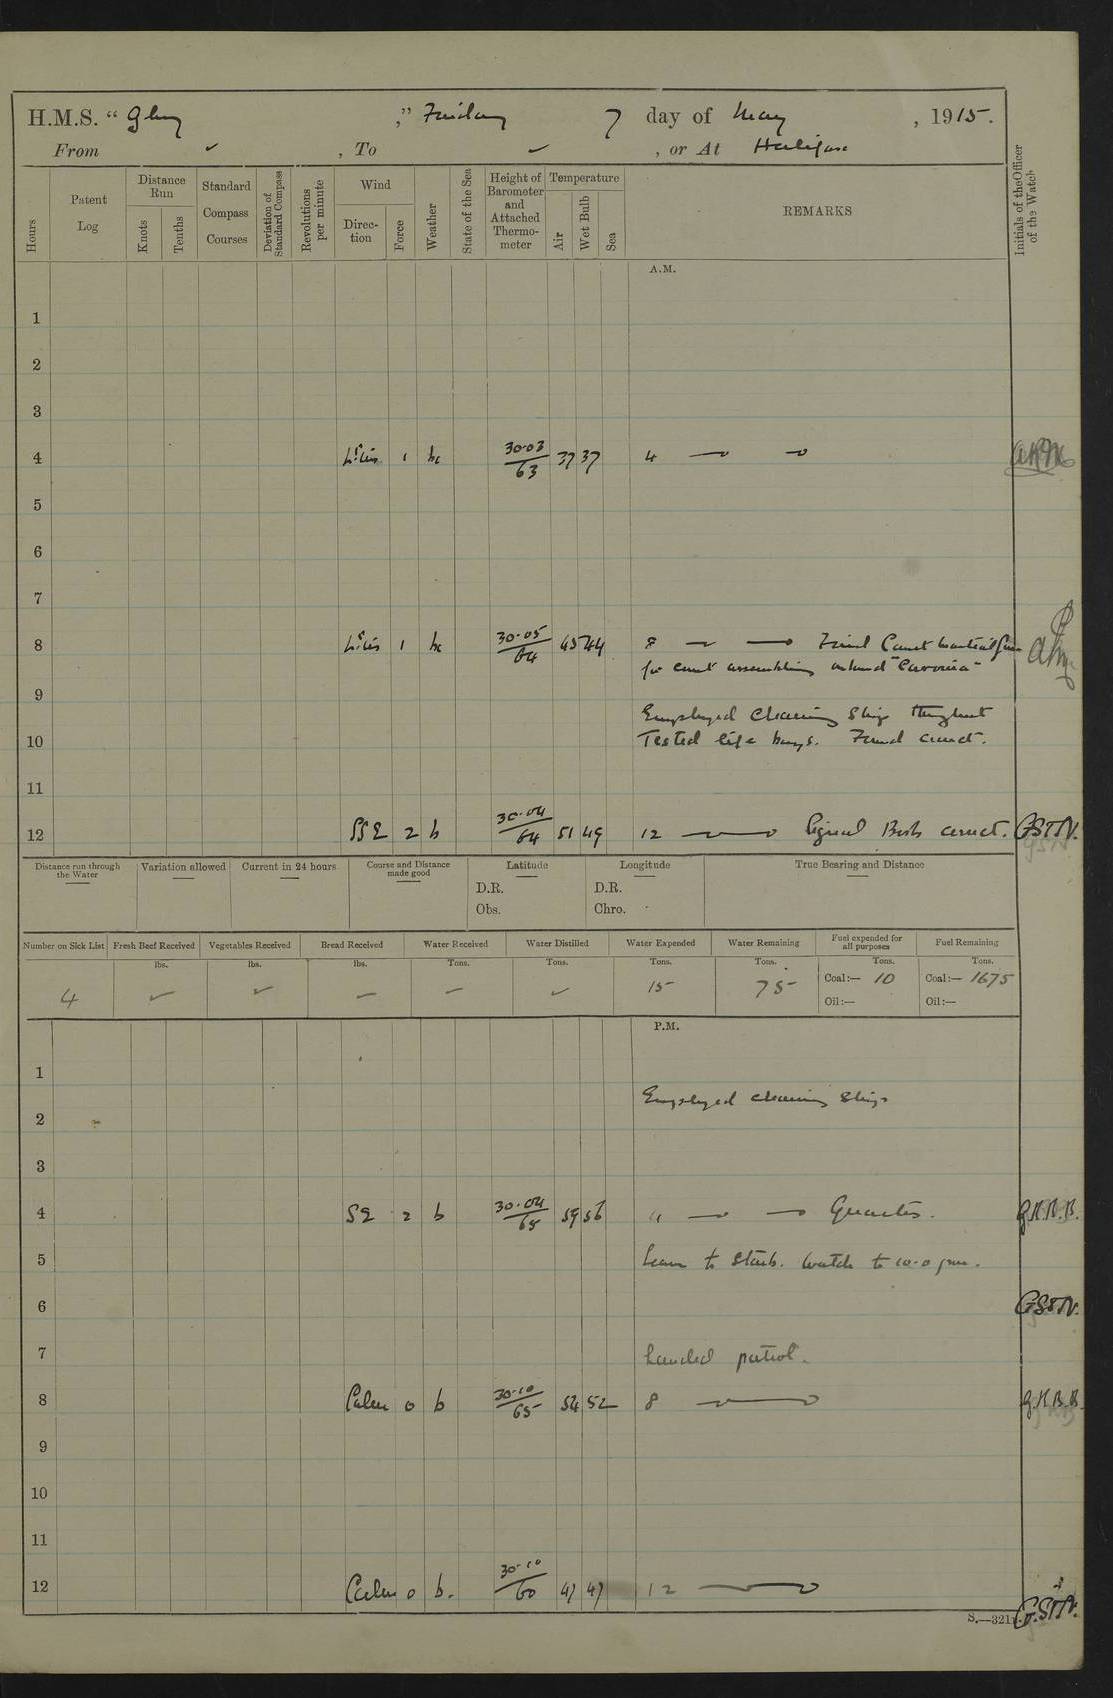 H.M.S. “Glory ,” Friday 7 day of May , 1915.
From ✓ , To ✓ , or At Halifax
Hours
Patent Log
Distance Run
Knots
Tenths
Standard Compass Courses
Deviation of Standard Compass
Revolutions per minute
Wind
Direction
Force
Weather
State of the Sea
Height of Barometer and Attached Thermometer
Temperature
Air
Wet Bulb
Sea
REMARKS
Initials of the Officer of the Watch
A.M.
1
2
3
4 Lt airs 1 bc 30·03/63 37 37 4
5
6
7
8 Lt airs 1 bc 30·05/64 45 44 8 Fired Court Martial gun
for court assembling onboard "Caronia"
9
Employed Cleaning Ship throughout
10 Tested life buoys. Found correct.
11
12 SSE 2 b 30·04/64 51 49 12 Signal Books correct. GSTN.
Distance run through the Water
Variation allowed
Current in 24 hours
Course and Distance made good
Latitude
D.R.
Obs.
Longitude
D.R.
Chro.
True Bearing and Distance
Number on Sick List
Fresh Beef Received
Vegetables Received
Bread Received
Water Received
Water Distilled
Water Expended
Water Remaining
Fuel expended for all purposes
Fuel Remaining
lbs. lbs. lbs. Tons. Tons. Tons. Tons. Tons. Tons.
4 ✓ ✓ – – ✓ 15 75 Coal:— 10 Coal:— 1675
Oil:— Oil:—
P.M.
1
Employed cleaning Ship
2
3
4 SE 2 b 30·04/65 59 56 4 Quarters. G.K.B.B.
5 Leave to Starb. Watch to 10·0 pm.
6 GSTN.
7 Landed patrol.
8 Calm 0 b 30·10/65 54 52 8 G.K.B.B.
9
10
11
12 Calm 0 b. 30·10/60 47 47 12 G.STN.